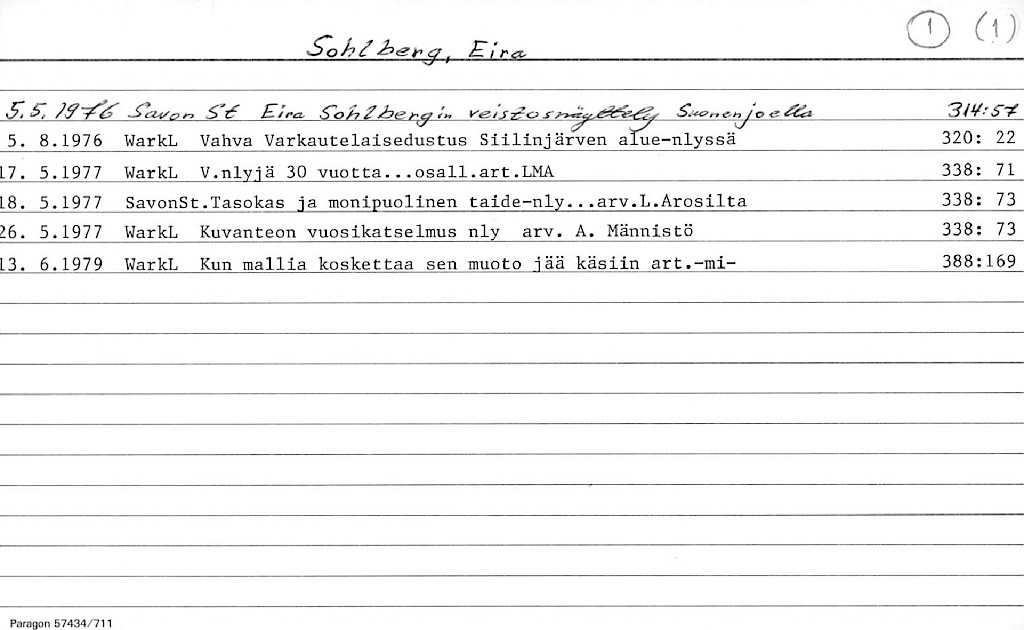 1 (1)
Sohlberg, Eira
5.5.1976 Savon St Eira Sohlbergin veistosnäyttely Suonenjoella 314:57
5. 8.1976 WarkL Vahva Varkautelaisedustus Siilinjärven alue-nlyssä 320: 22
17. 5.1977 WarkL V.nlyjä 30 vuotta...osall.art.LMA 338: 71
18. 5.1977 SavonSt.Tasokas ja monipuolinen taide-nly...arv.L.Arosilta 338: 73
26. 5.1977 WarkL Kuvanteon vuosikatselmus nly arv. A. Männistö 338: 73
13. 6.1979 WarkL Kun mallia koskettaa sen muoto jää käsiin art.-mi- 388:169
Paragon 57434/711